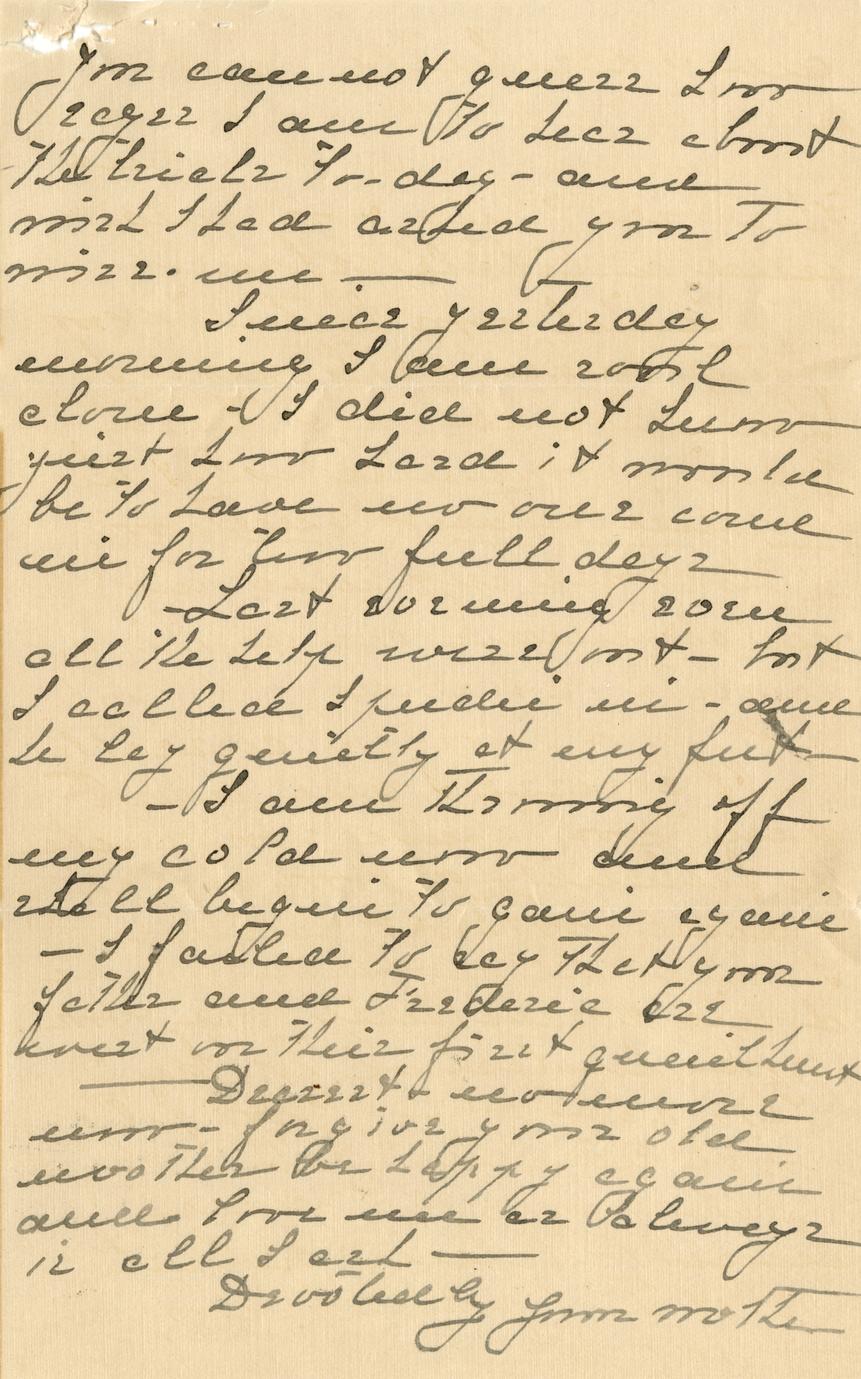 You cannot guess how
eager I am to hear about
the trials to-day - and
wish I had asked you to
wire me —
Since yesterday
morning I am
alone - I did not know
just how hard it would
be to have no one come
in for two full days
- Last evening
all the help were out - but
I called in - and
he lay quietly at my feet
- I am throwing off
my cold now and
shall begin to gain again
- I failed to say that your
father and Frederic are
west on their first quail hunt
— Dearest - no more
now - forgive your old
mother be happy again
and love me as always
is all I ask —
Devotedly your mother